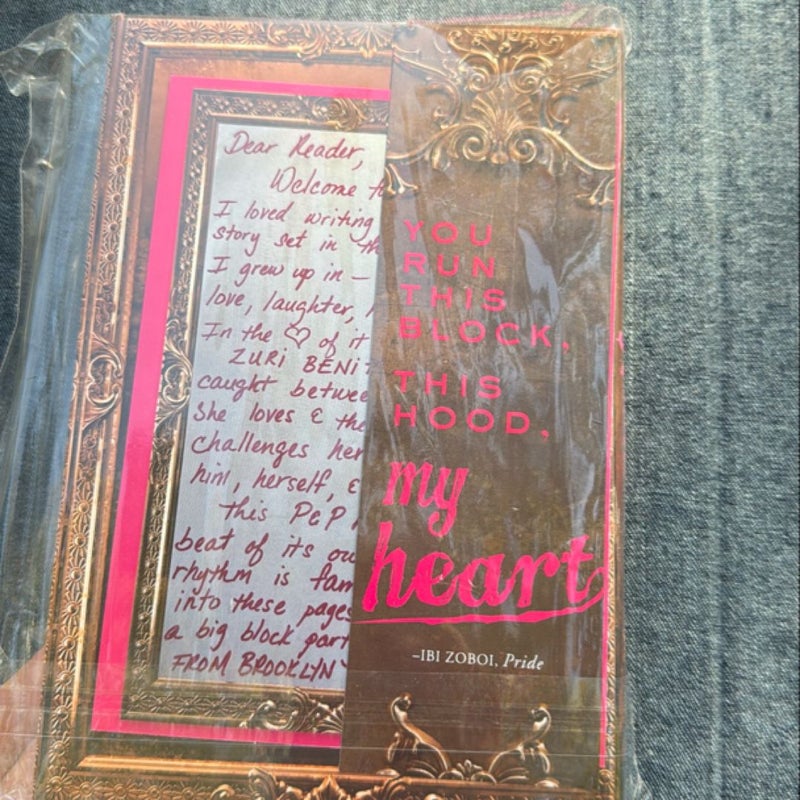 Dear Reader,
Welcome to
I loved writing
story set in th
I grew up in —
love, laughter,
In the ♡ of it
ZURI BENIT
caught betwee
She loves & the
challenges her
him, herself, &
this P&P
beat of its ow
rhythm is fam
into these pages
a big block part
FROM BROOKLYN
YOU
RUN
THIS
BLOCK,
THIS
HOOD,
my
heart
–IBI ZOBOI, Pride